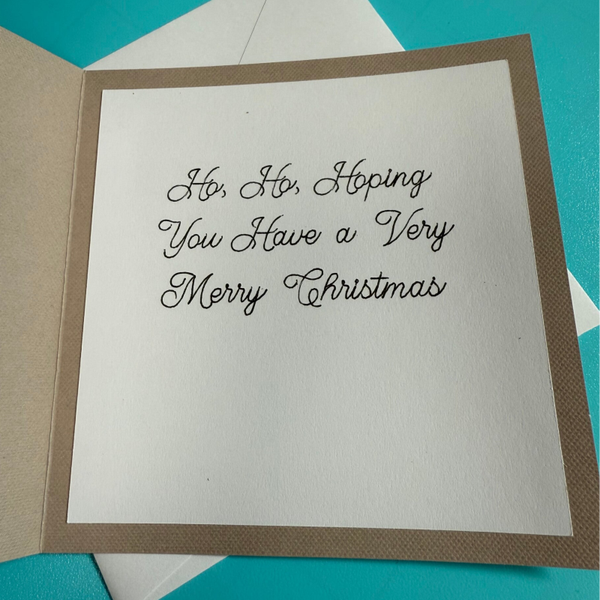 Ho, Ho, Hoping
You Have a Very
Merry Christmas